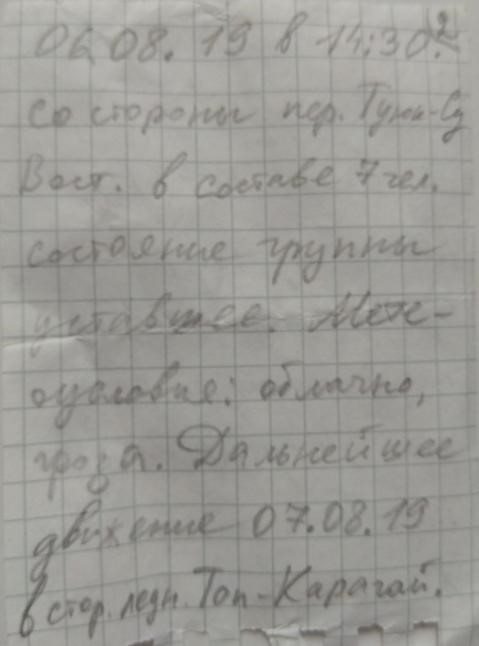 06.08.19 в 14:30. 2
со стороны пер. Тузук-Су
Вост. в составе 7 чел.
состояние группы
уставшее. Мете-
оусловие: облачно,
гроза. Дальнейшее
движение 07.08.19
в стор. ледн. Топ-Карагай.